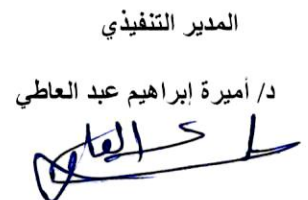 المدير التنفيذي
د/ أميرة إبراهيم عبد العاطي